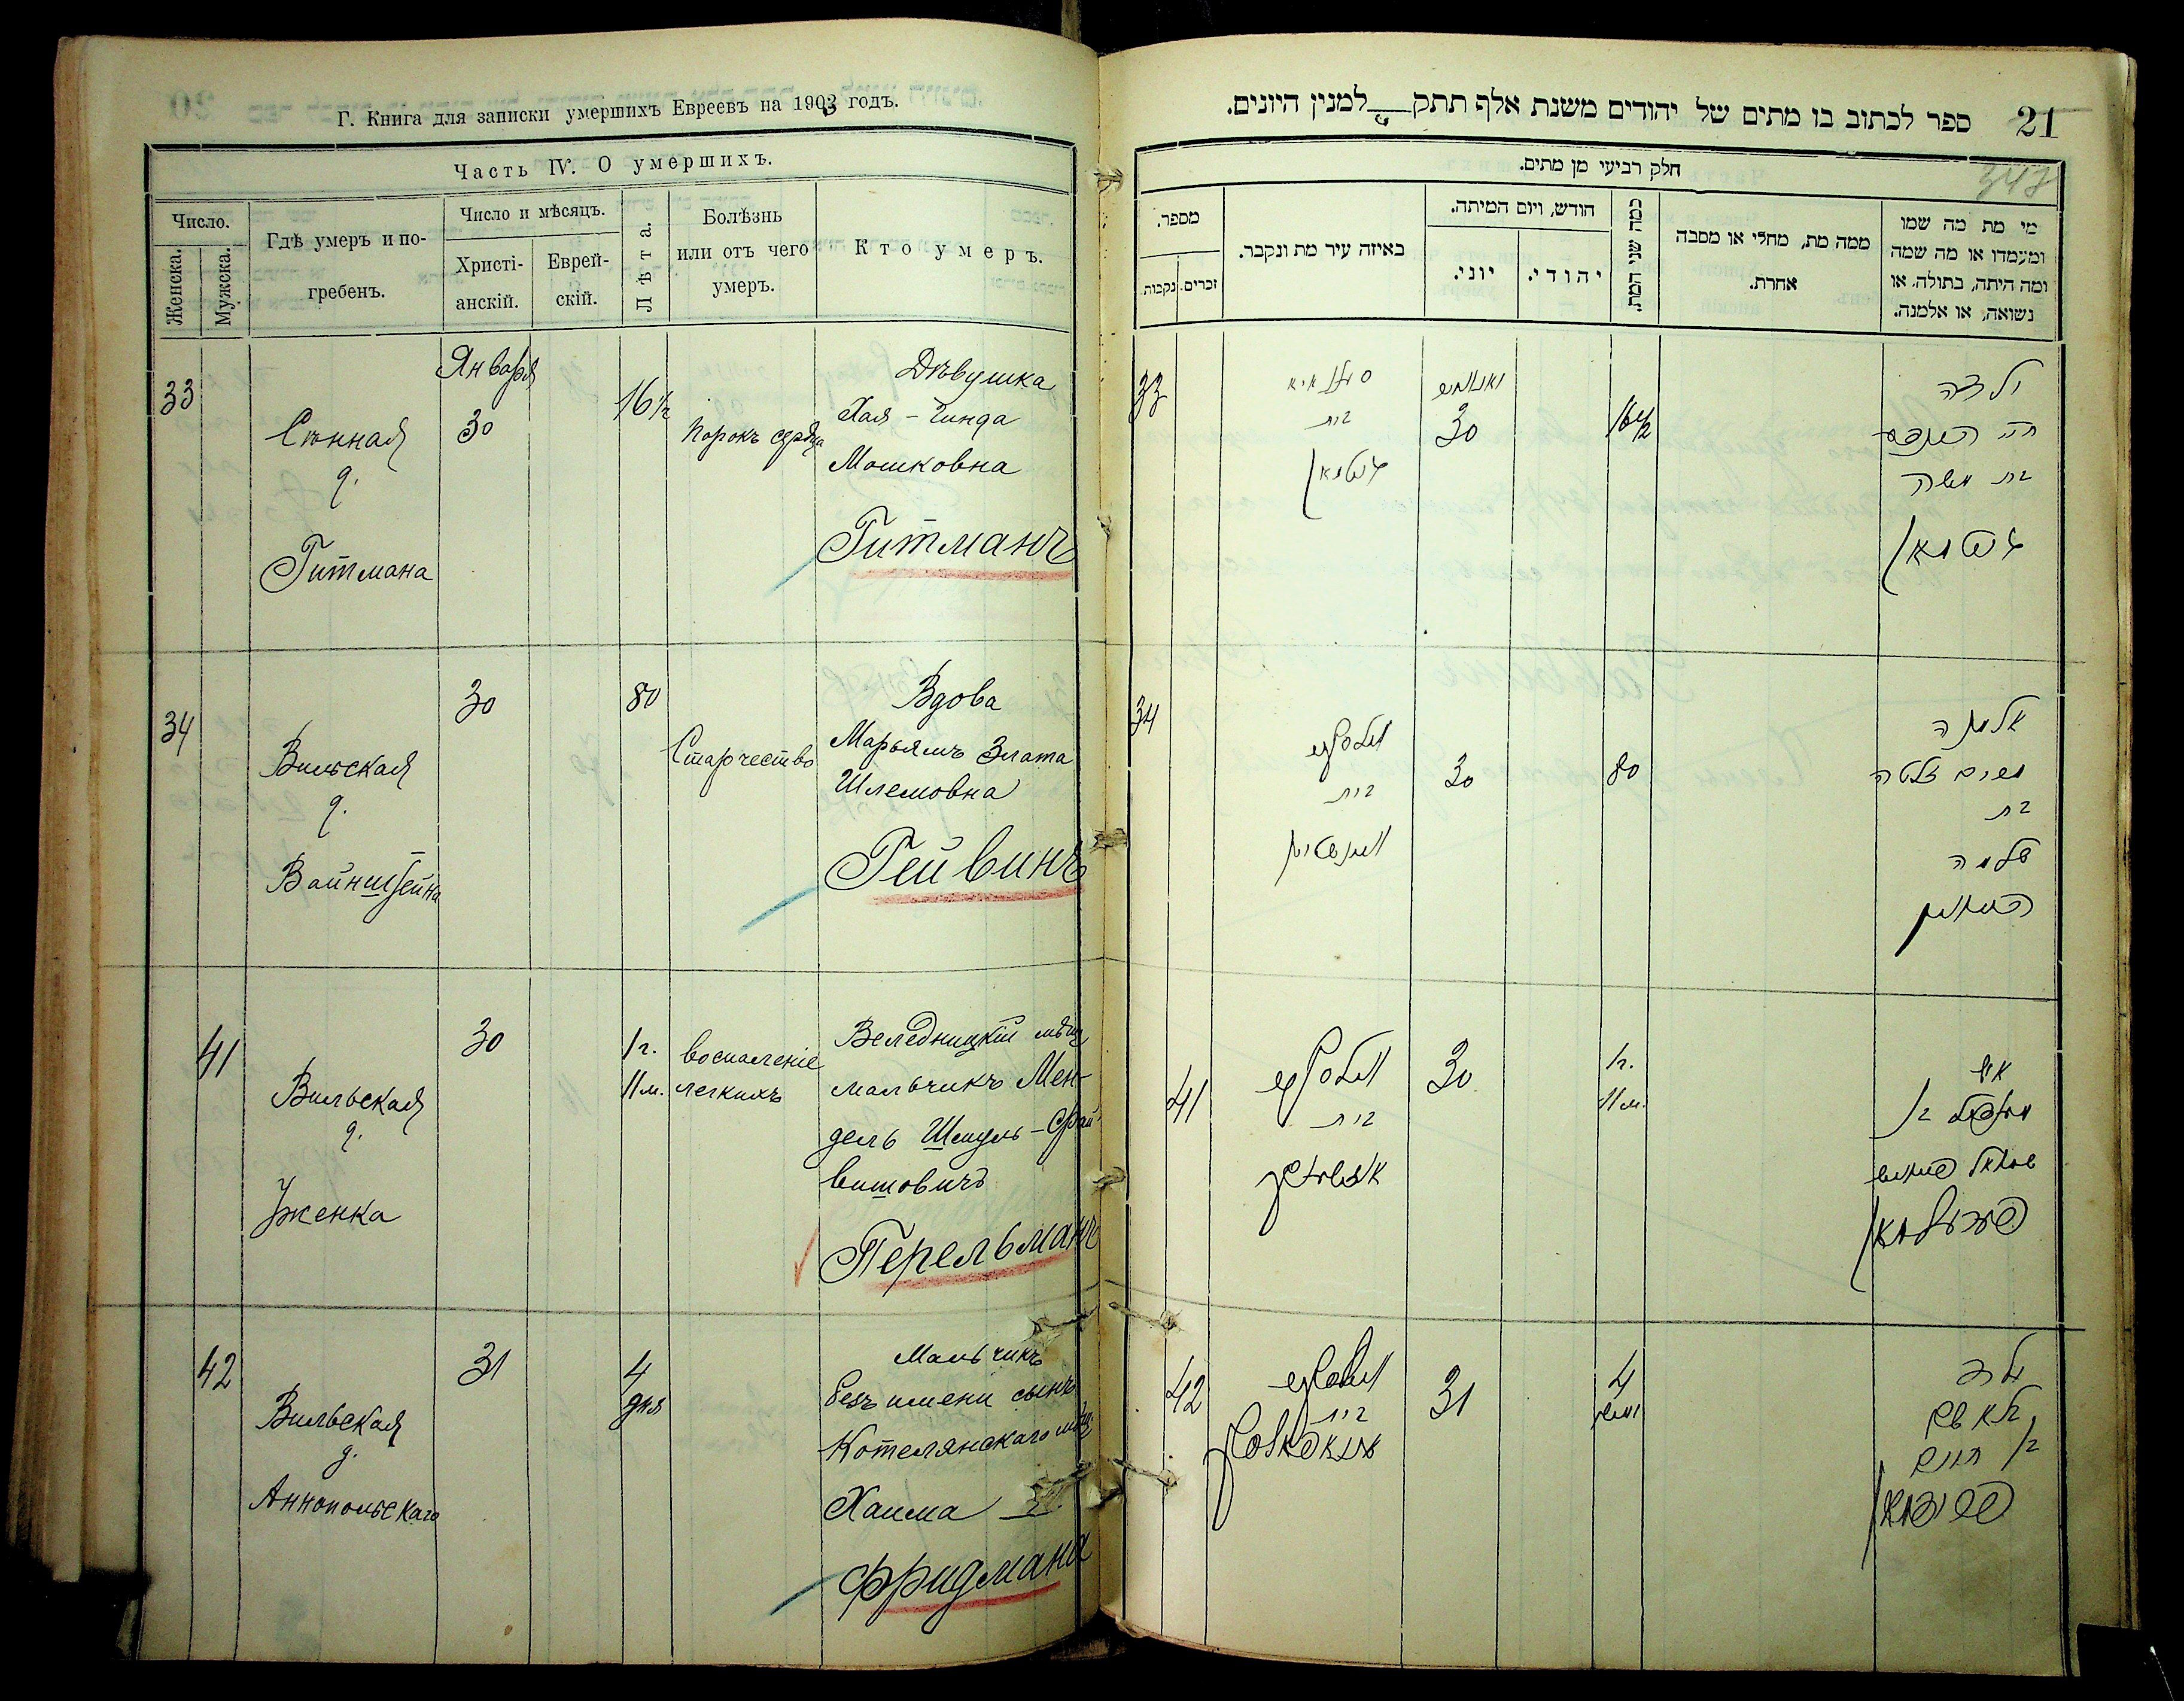 Г. Книга для записки умершихъ Евреевъ на 1903 годъ.
Часть IV. О умершихъ.
Число.
Женска.
Мужска.
Гдѣ умеръ и по-
гребенъ.
Число и мѣсяцъ.
Христі-
анскій.
Еврей-
скій.
Лѣта.
Болѣзнь
или отъ чего
умеръ.
Кто умеръ.
33
Сѣнная
д.
Гитмана
Января
30
16½
Порокъ сердца
Дѣвушка
Хая-Гинда
Мошковна
Гитманъ
34
Вильская
д.
Вайнштейна
30
80
Старчество
Вдова
Марьямъ Злата
Шлемовна
Гейвинъ
41
Вильская
д.
Уженка
30
1 г.
11 м.
воспаленіе
легкихъ
Веледницкій мѣщ
мальчикъ Мен-
дель Шмуль-Фай-
вишовичъ
Перельманъ
42
Вильская
д.
Аннопольскаго
31
4
дня
Мальчикъ
безъ имени сынъ
Котелянскаго мѣщ
Хаима
Фридмана
21
ספר לכתוב בו מתים של יהודים משנת אלף תתק למנין היונים.
347
חלק רביעי מן מתים.
מספר.
זכרים.
נקבות
באיזה עיר מת ונקבר.
חודש, ויום המיתה.
יוני.
יהודי.
כמה שני המת.
ממה מת, מחלי או מסבה
אחרת.
מי מת מה שמו
ומעמדו או מה שמה
ומה היתה, בתולה, או
נשואה, או אלמנה.
33
בית
גיטמאן
30
16½
ילדה
בת משה
גיטמאן
34
בית
30
80
אלמנה
מרים זלטה
בת
שלמה
41
בית
30
1 г.
11 м.
בן
פערעלמאן
42
בית
31
4
ילד
בלא שם
בן חיים
פרידמאן